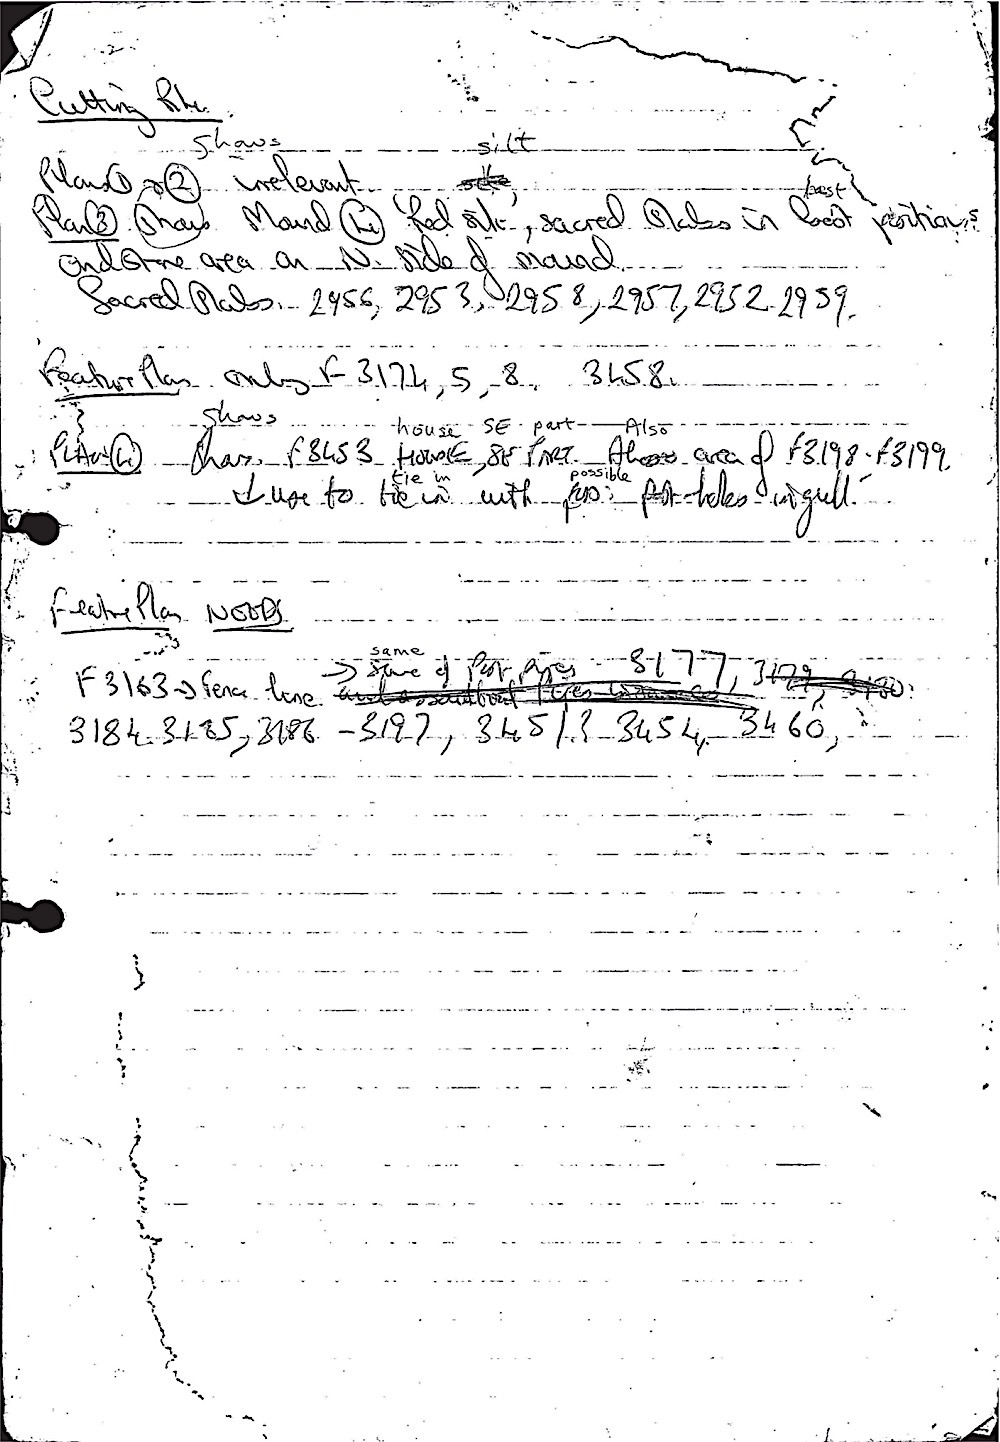 Cutting
shows silt
Plans 1 & 2 irrelevant
best
Plan 3 shows Mound 4 'Red silt', sacred slabs in best positions
and stone area on N. side of mound
Sacred Slabs. 2956, 2953, 2958, 2957, 2952 2959.
Feature Plan only F 3174, 5, 8. 3458.
shows house SE part Also
PLAN 4 shows F3453 HOUSE, SE PART. Also area of F3198-F3199.
tie in possible
use to tie in with poss. post-holes in gull.
Feature Plan NEEDS
same
→ some of Post pipes 3177, 3179, 3180.
F3163 → fence line
3184 3185, 3186 - 3197, 3451? 3454, 3460,